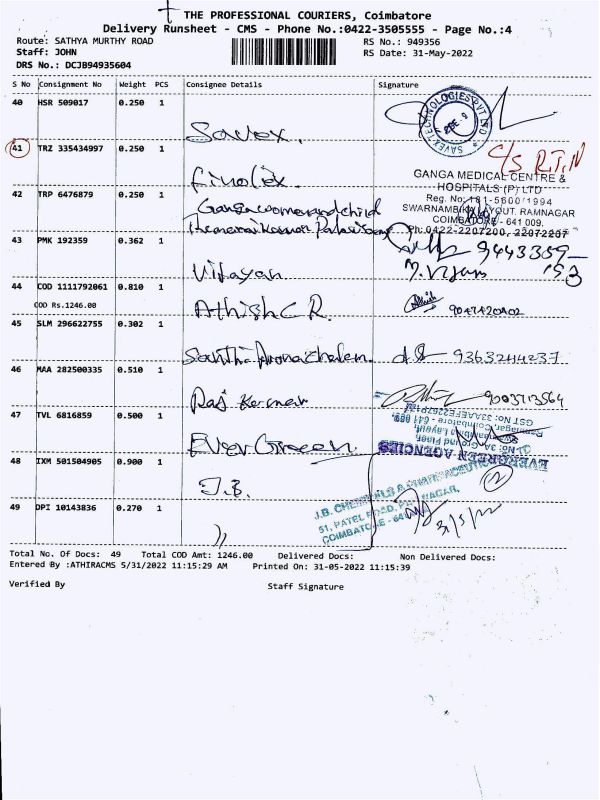 THE PROFESSIONAL COURIERS, Coimbatore
Delivery Runsheet - CMS - Phone No.:0422-3505555 - Page No.:4
Route: SATHYA MURTHY ROAD RS No.: 949356
Staff: JOHN RS Date: 31-May-2022
DRS No.: DCJB94935604
S No Consignment No Weight PCS Consignee Details Signature
40 HSR 509017 0.250 1
Savex.
SAVEX TECHNOLOGIES PVT LTD
41 TRZ 335434997 0.250 1
C/S R.T.N
Finolex.
GANGA MEDICAL CENTRE &
HOSPITALS (P) LTD
42 TRP 6476879 0.250 1
Reg. No: 181-5600/1994
Ganga women and child
SWARNAMBIKA LAYOUT. RAMNAGAR
COIMBATORE - 641 009.
Ph:0422-2207200, 22072207
43 PMK 192359 0.362 1
9443359
Vijayan
153
44 COD 1111792061 0.810 1
Athish C R.
COD Rs.1246.00
9047420402
45 SLM 296622755 0.302 1
9363244237
46 MAA 282500335 0.510 1
Raj Kumar
9003713564
47 TVL 6816859 0.500 1
Ever Green
EVERGREEN AGENCIES
48 IXM 501504905 0.900 1
J.B.
2
J.B. CHEMICALS & PHARMACEUTICALS
51, PATEL ROAD, RAMNAGAR,
COIMBATORE - 641
49 DPI 10143836 0.270 1
31/5/22
))
Total No. Of Docs: 49 Total COD Amt: 1246.00 Delivered Docs: Non Delivered Docs:
Entered By :ATHIRACMS 5/31/2022 11:15:29 AM Printed On: 31-05-2022 11:15:39
Verified By Staff Signature